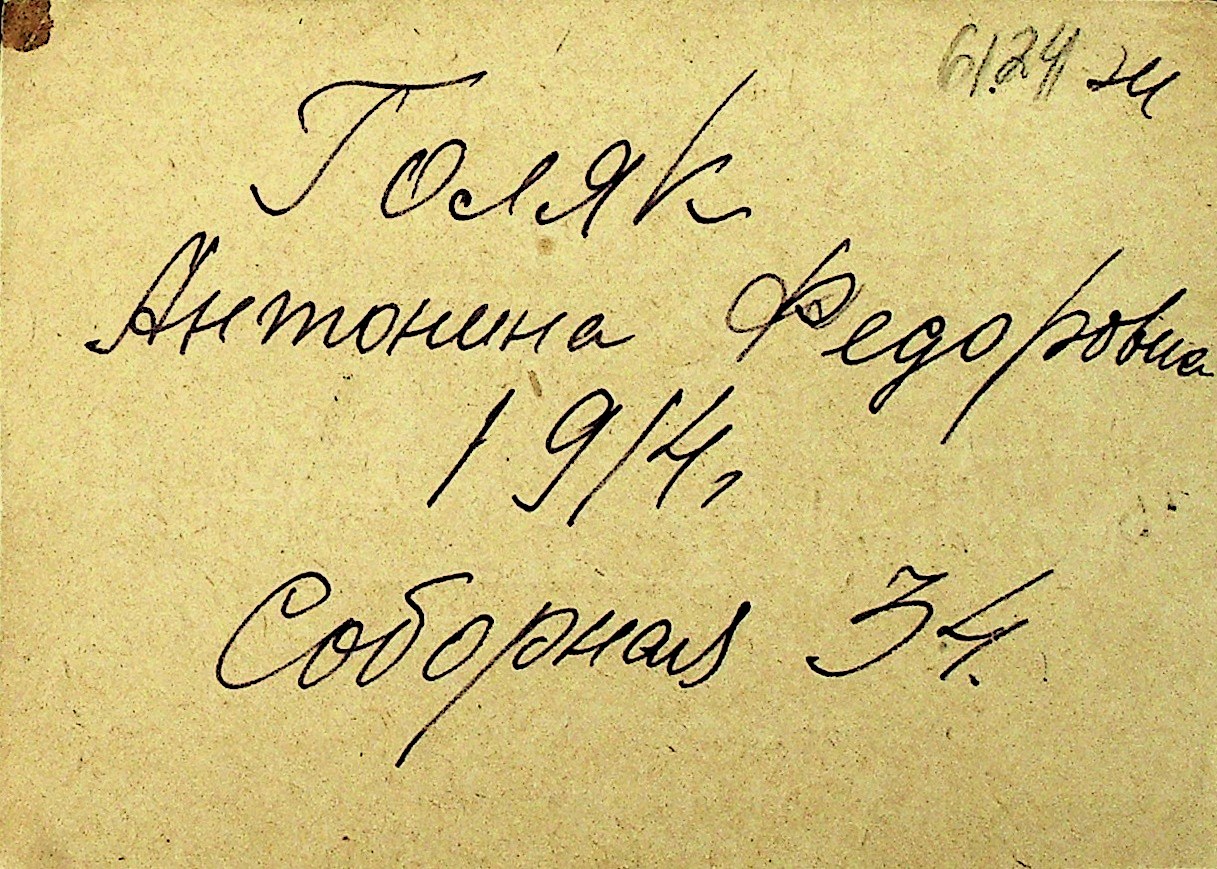 6124 ж
Голяк
Антонина Федоровна
1914,
Соборная 34.